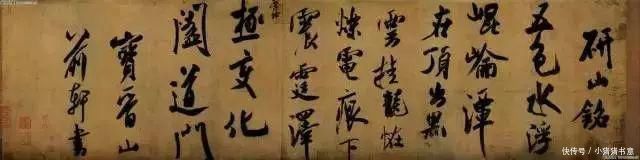 研山銘
五色水浮
崐崘潭
在頂出黑
雲挂龍恠
爍電痕下
震霆澤
極變化
闔道門
寶晉山
前軒書
快传号